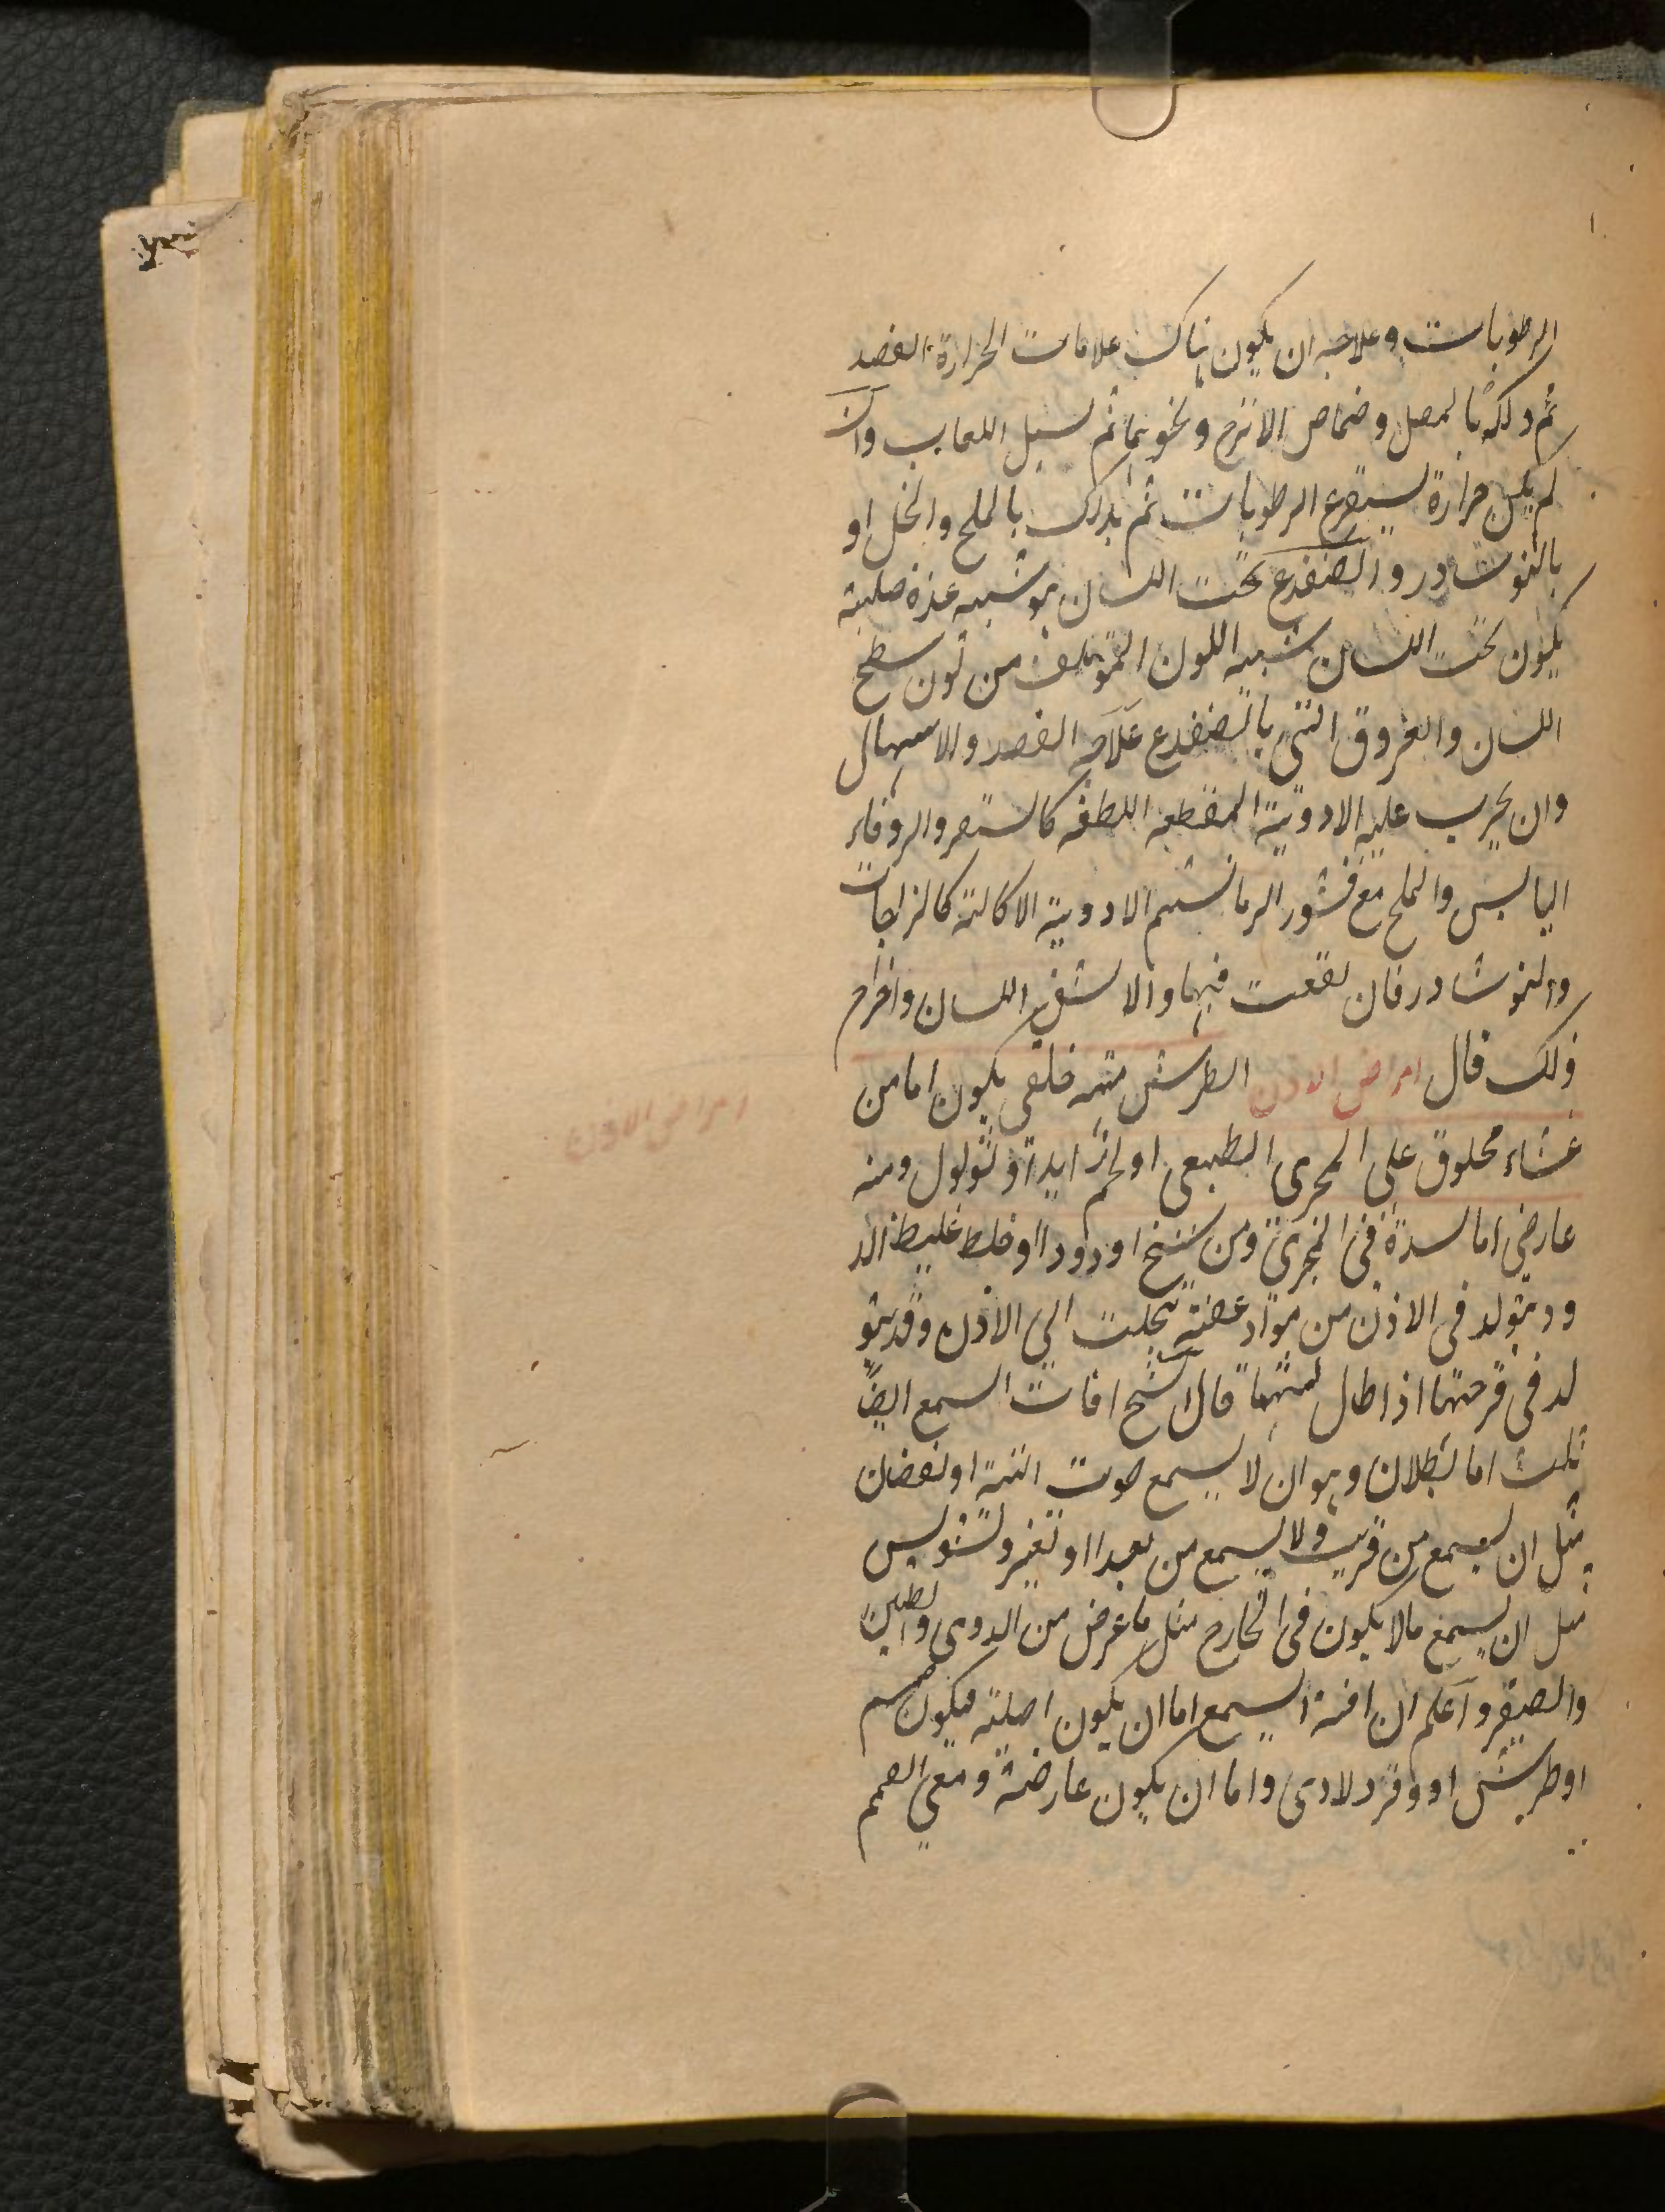 الرطوبات وعلاجه ان يكون هناك علامات الحرارة الفصد
ثم دلكه بالمصل وحماض الاترج ونحوهما ثم لسيل اللعاب وان
لم يكن حرارة يستفرغ الرطوبات ثم يدلك بالملح والخل او
بالنوشادر والضفدع تحت اللسان هو شبيه غدة صلبة
يكون تحت اللسان شبيه اللون المؤتلف من لون سطح
اللسان والعروق التي بالضفدع علاجه الفصد والاسهال
وان يجرب عليه الادوية المقطعه اللطفه كالسعتر والزوفاء
اليابس والملح مع قشور الرمان ثم الادوية الاكالة كالزاجات
والنوشادر فان نفعت فبها والا شق اللسان واخراج
ذلك قال امراض الاذن الطرش منه خلقي يكون اما من
غشاء مخلوق على المجرى الطبيعى او لحم زايد او ثولول ومنه
عارضى اما لسدة في المجرى ومن سنخ او دود او خلط غليظ الد
ود يتولد في الاذن من مواد عفنة تجلبت الى الاذن وقد يتو
لد في قرحتها اذا طال لبثها قال الشيخ افات السمع ايضا
ثلث اما بطلان وهو ان لا يسمع صوت البتة او نقصان
مثل ان يسمع من قريب ولا يسمع من بعد او تغير وتشويش
مثل ان يسمع مالا يكون في الخارج مثل ما عرض من الدوى والطنين
والصفير واعلم ان افة السمع اما ان يكون اصلية فيكون صمم
او طرش او وقر ولادى واما ان يكون عارضة ومعنى الصمم
امراض الاذن